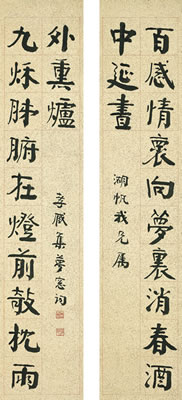 百感情褱向夢裏消春酒
中延晝
湖帆我兄属
九秌肺腑在燈前攲枕雨
外熏爐
孝臧集夢窓詞